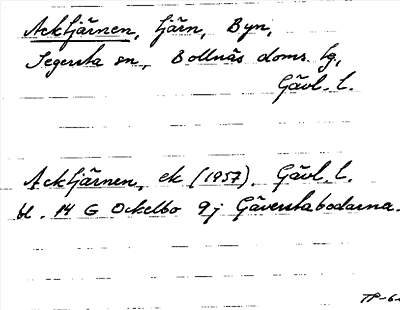 Acktjärnen, tjärn, Byn,
Segersta sn, Bollnäs doms. tg,
Gävl. l.
Acktjärnen, ek (1957). Gävl. l.
bl. 14 G Ockelbo 9j Gäverstabodarna.
TP-6